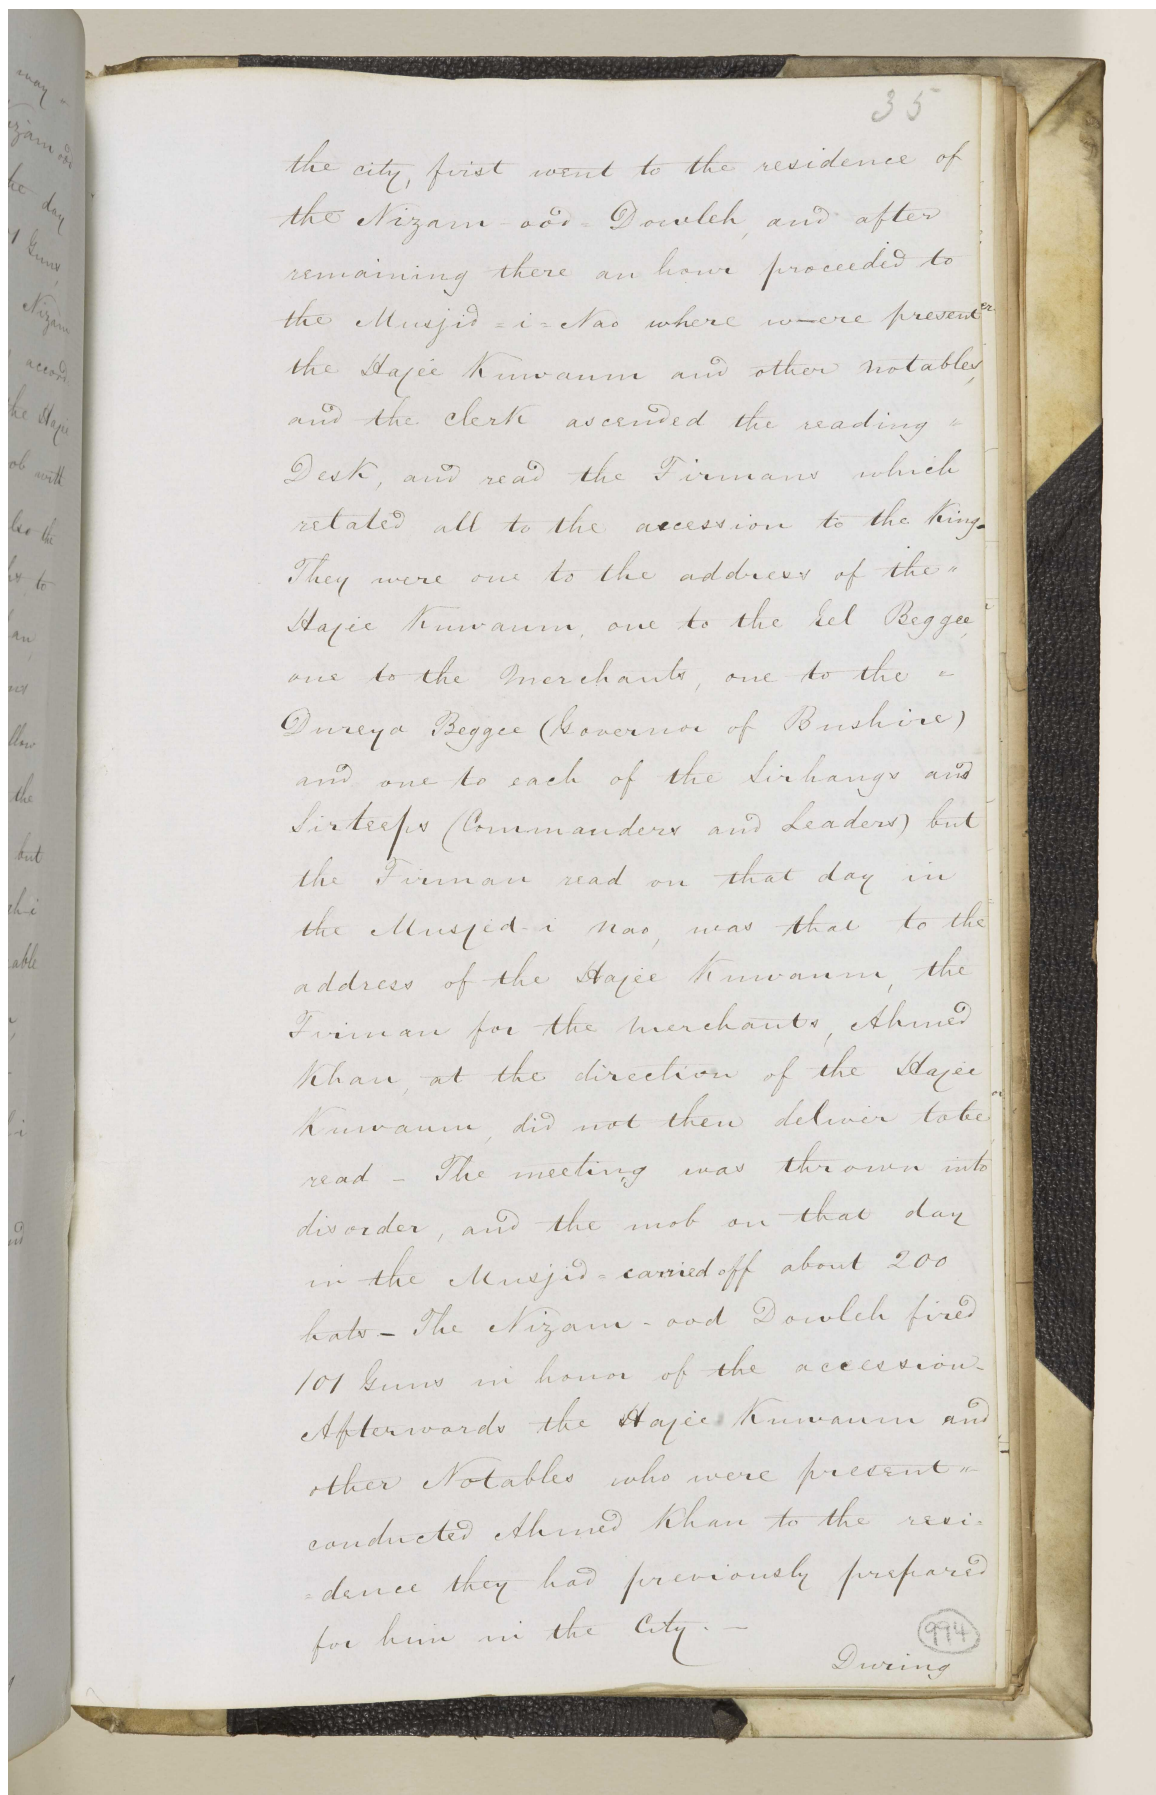 35
the city, first went to the residence of
the Nizam-ood=Dowleh, and after
remaining there an hour proceeded to
the Musjid=i=Nao where were present
the Hajee Kuwaum and other notables,
and the clerk ascended the reading "
Desk, and read the Firmans which
related all to the accession to the King-
They were one to the address of the "
Hajee Kuwaum, one to the Eel Beggee,
one to the Merchants, one to the =
Dureya Beggee (Governor of Bushire)
and one to each of the Sirhangs and
Sirteeps (Commanders and Leaders) but
the Firman read on that day in
the Musjed-i Nao, was that to the
address of the Hajee Kuwaum, the
Firman for the Merchants, Ahmed
Khan, at the direction of the Hajee
Kuwaum, did not then deliver to be
read - The meeting was thrown into
disorder, and the mob on that day
in the Musjid = carried off about 200
hats - The Nizam-ood Dowleh fired
101 Guns in honor of the accession-
Afterwards the Hajee Kuwaum and
other Notables who were present "
conducted Ahmed Khan to the resi=
=dence they had previously prepared
for him in the City. -
994
During
may -
Nizam ood
the day
Guns,
Nizam
accord
the Hajee
mob with
also the
to
the
but
able